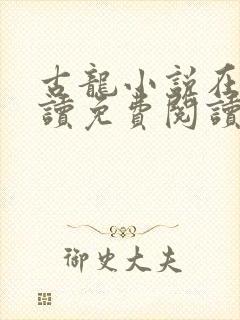 古龍小說在
讀免費閱讀
御史大夫